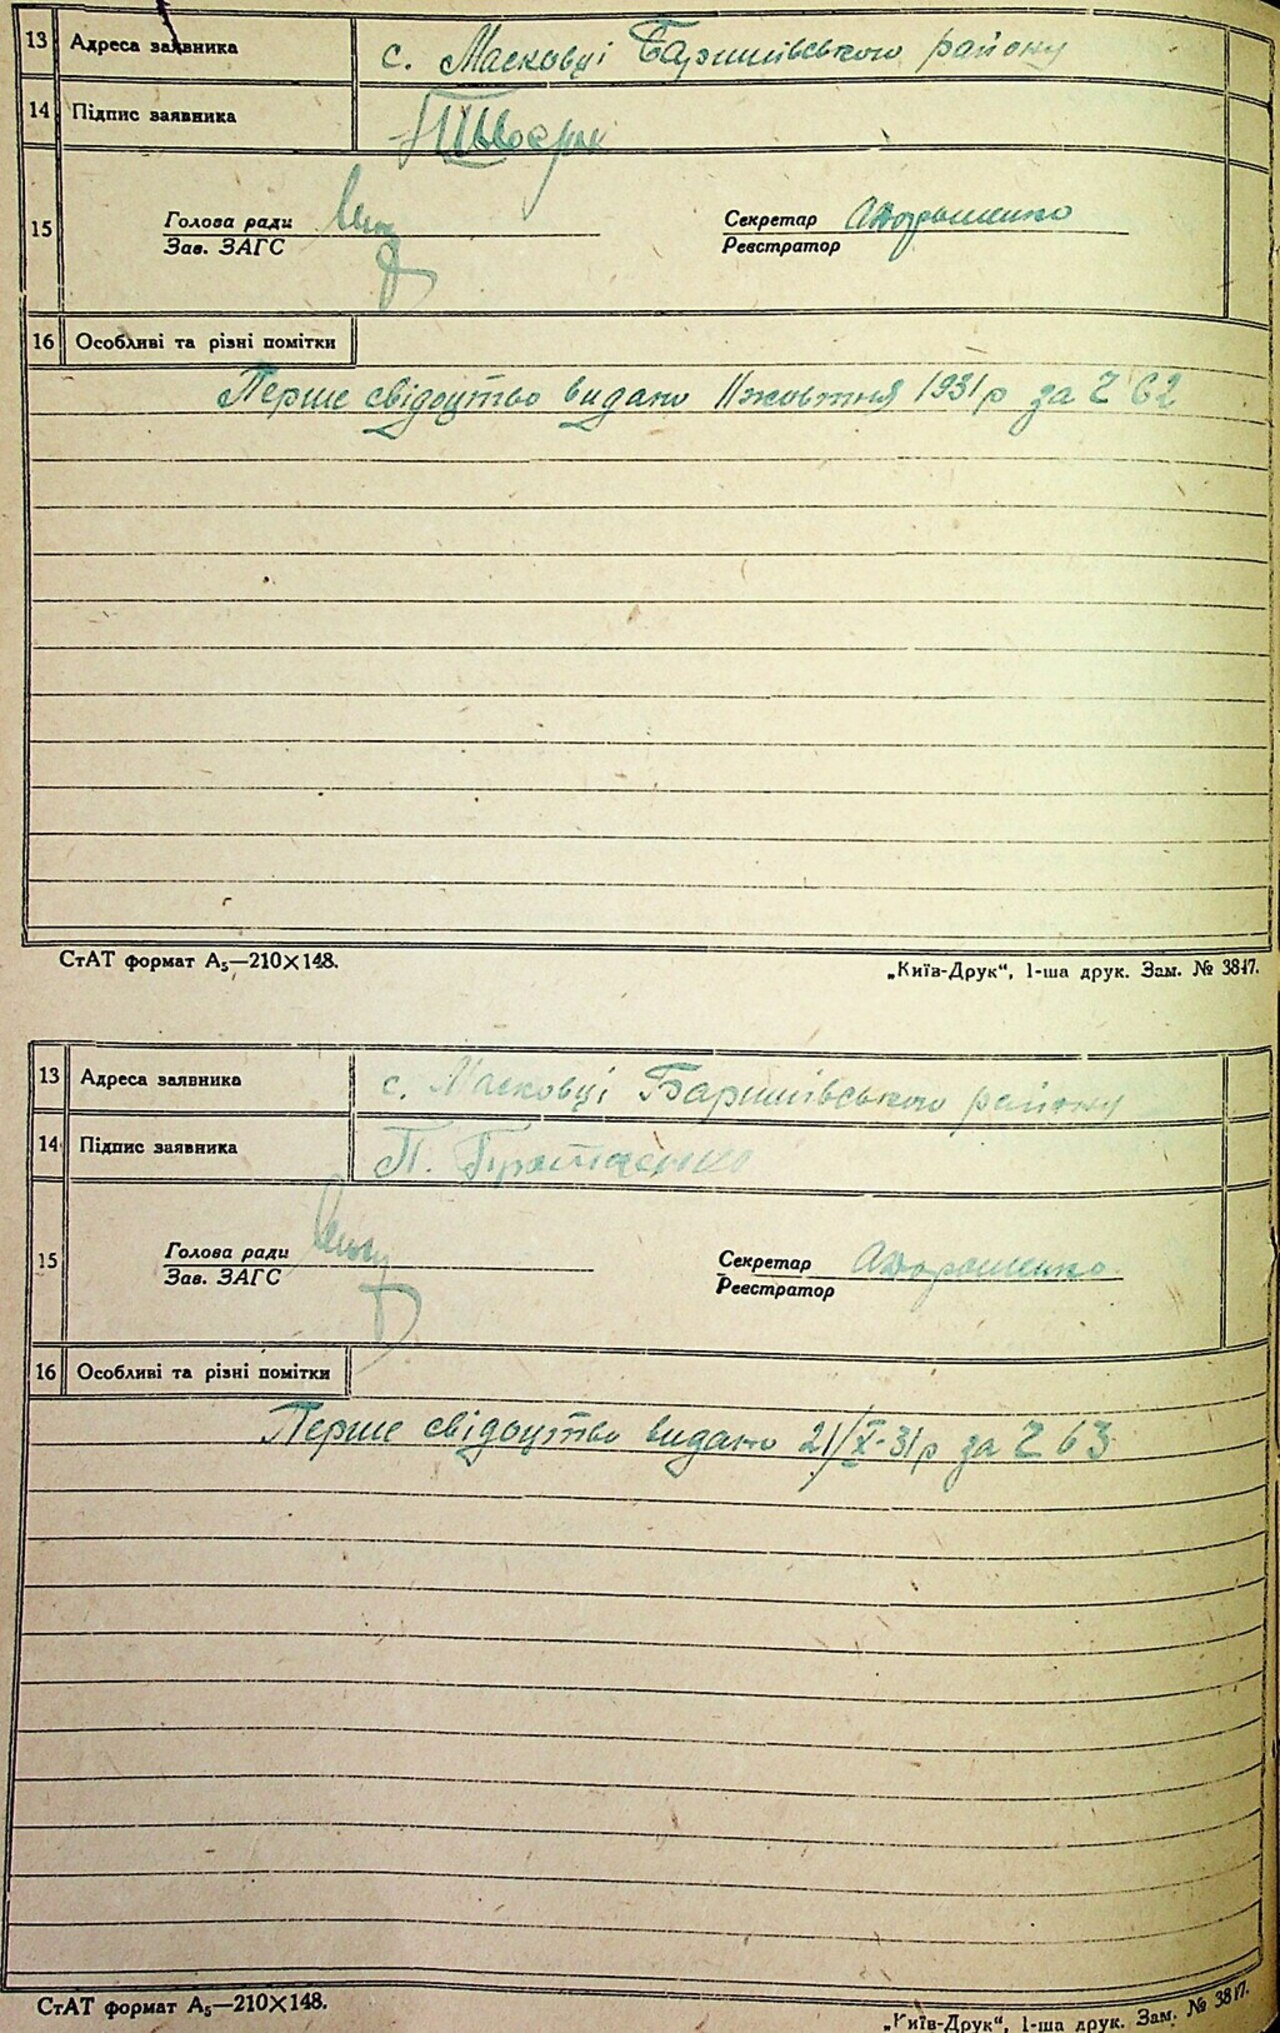 13 Адреса заявника с. Масковці Баришівського району
14 Підпис заявника
15 Голова ради Секретар АДорошенко
Зав. ЗАГС Реєстратор
16 Особливі та різні помітки
Перше свідоцтво видано 11 жовтня 1931 р за № 62
СтАТ формат А₅—210×148. „Київ-Друк“, 1-ша друк. Зам. № 3847.
13 Адреса заявника с. Масковці Баришівського району
14 Підпис заявника П.
15 Голова ради Секретар АДорошенко
Зав. ЗАГС Реєстратор
16 Особливі та різні помітки
Перше свідоцтво видано 21/X-31 р за № 63
СтАТ формат А₅—210×148. „Київ-Друк“, 1-ша друк. Зам. № 3847.